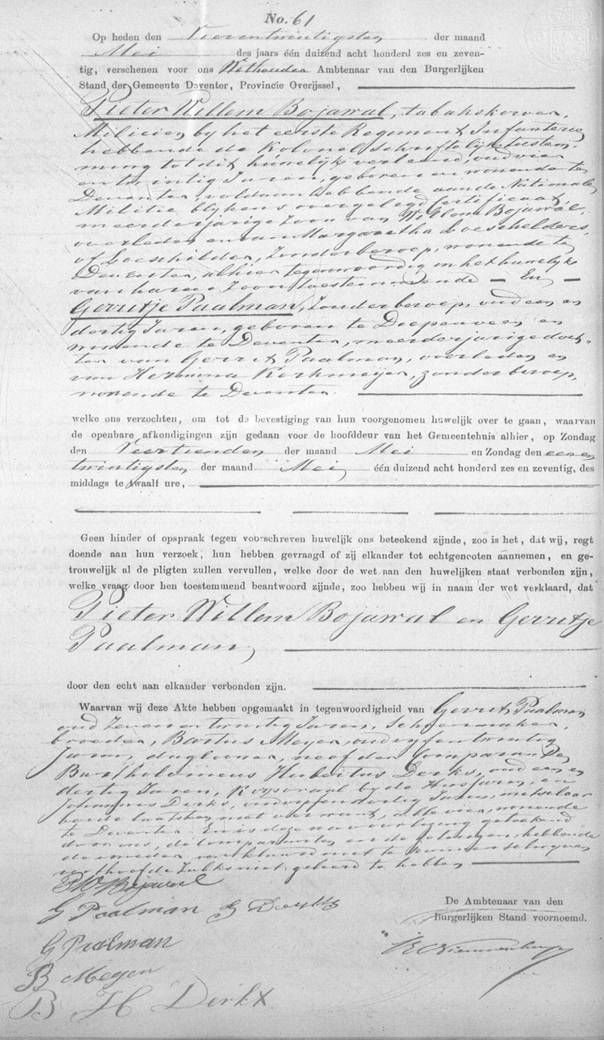 No. 61
Op heden den Vierentwintigsten der maand
Mei des jaars één duizend acht honderd zes en zeven-
tig, verschenen voor ons Wethouder Ambtenaar van den Burgerlijken
Stand der Gemeente Deventer, Provincie Overijssel,
Pieter Willem Bojawal, tabakskerver,
Milicien by het eerste Regiment Infanterie,
hebbende de Kolonel schriftelijk toestem-
ming tot dit huwelijk verleend, oud vier
en twintig Jaren, geboren en wonende te
Deventer, voldaan hebbende aan de Nationale
Militie blykens overgelegd certificaat,
meerderjarige zoon van Bojawal,
overleden en van Margaretha Loeschelders
of Loeschilder, Zonder beroep, wonende te
Deventer, alhier tegenwoordig en in het huwelijk
van haren Zoon toestemmende – En –
Gerritje Paalman, Zonder beroep, oud een en
dertig Jaren, geboren te Diepenveen en
wonende te Deventer, meerderjarige doch-
ter van Gerrit Paalman, overleden en
van Hermina Kerkmeijer, zonder beroep,
wonende te Deventer.
welke ons verzochten, om tot de bevestiging van hun voorgenomen huwelijk over te gaan, waarvan
de openbare afkondigingen zijn gedaan voor de hoofddeur van het Gemeentehuis alhier, op Zondag
den Veertienden der maand Mei en Zondag den een en
twintigsten der maand Mei één duizend acht honderd zes en zeventig, des
middags te twaalf ure,
Geen hinder of opspraak tegen voorschreven huwelijk ons beteekend zijnde, zoo is het, dat wij, regt
doende aan hun verzoek, hun hebben gevraagd of zij elkander tot echtgenooten aannemen, en ge-
trouwelijk al de pligten zullen vervullen, welke door de wet aan den huwelijken staat verbonden zijn,
welke vraag door hen toestemmend beantwoord zijnde, zoo hebben wij in naam der wet verklaard, dat
Pieter Willem Bojawal en Gerritje
Paalman,
door den echt aan elkander verbonden zijn.
Waarvan wij deze Akte hebben opgemaakt in tegenwoordigheid van Gerrit Paalman
oud Zeven en twintig Jaren, Schoenmaker,
broeder, Bartus Meyer, oud vyf en twintig
Jaren, daglooner, neef der Comparanten
Bartholomeus Hubertus Derks, oud een en
dertig Jaren, Korporaal by de Huzaren, en
Johannes Derks, oud vyf en dertig Jaren, metselaar
beide laatsten niet verwant, alle vier wonende
te Deventer. En is deze na voorlezing geteekend
door ons, de comparanten en de getuigen, hebbende
de moeder verklaard niet te kunnen schryven
uit hoofde Zulks niet geleerd te hebben
P W Bojawal
G Paalman G Derks
G Paalman
B Meyer
B H Derkx
De Ambtenaar van den
Burgerlijken Stand voornoemd.